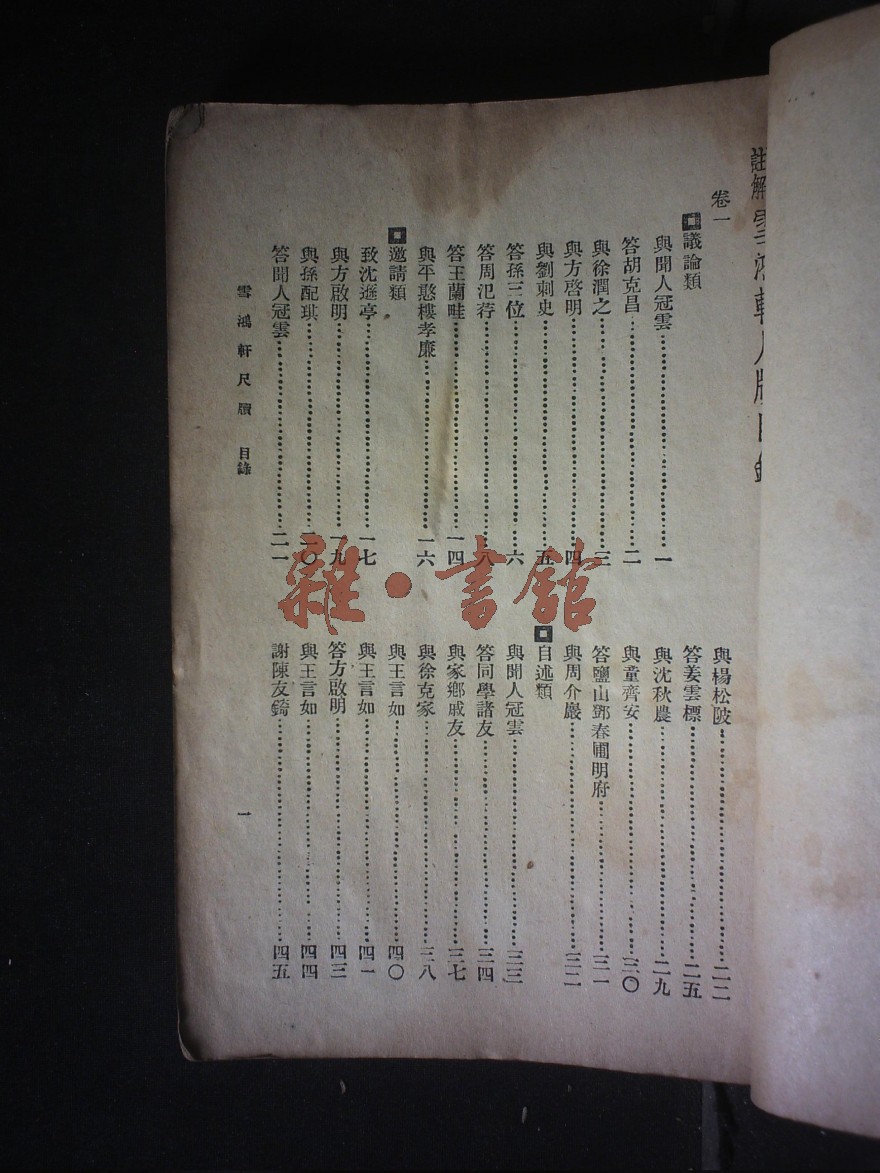 註解雪鴻軒尺牘目錄
卷一
議論類
與聞人冠雲 一
答胡克昌 二
與徐潤之 三
與方啓明 四
與劉刺史 五
答孫三位 六
答周汜荇 八
答王蘭畦 一四
與平憨樓孝廉 一六
邀請類
致沈遜亭 一七
與方啟明 一九
與孫配琪 二〇
答聞人冠雲 二一
與楊松陂 二二
答姜雲標 二五
與沈秋農 二九
與童齊安 三〇
答鹽山鄧春圃明府 三一
與周介巖 三二
自述類
與聞人冠雲 三三
答同學諸友 三四
與家鄉戚友 三七
與徐克家 三八
與王言如 四〇
與王言如 四一
答方啟明 四三
與王言如 四四
謝陳友錡 四五
雪鴻軒尺牘 目錄
一
雜·書館